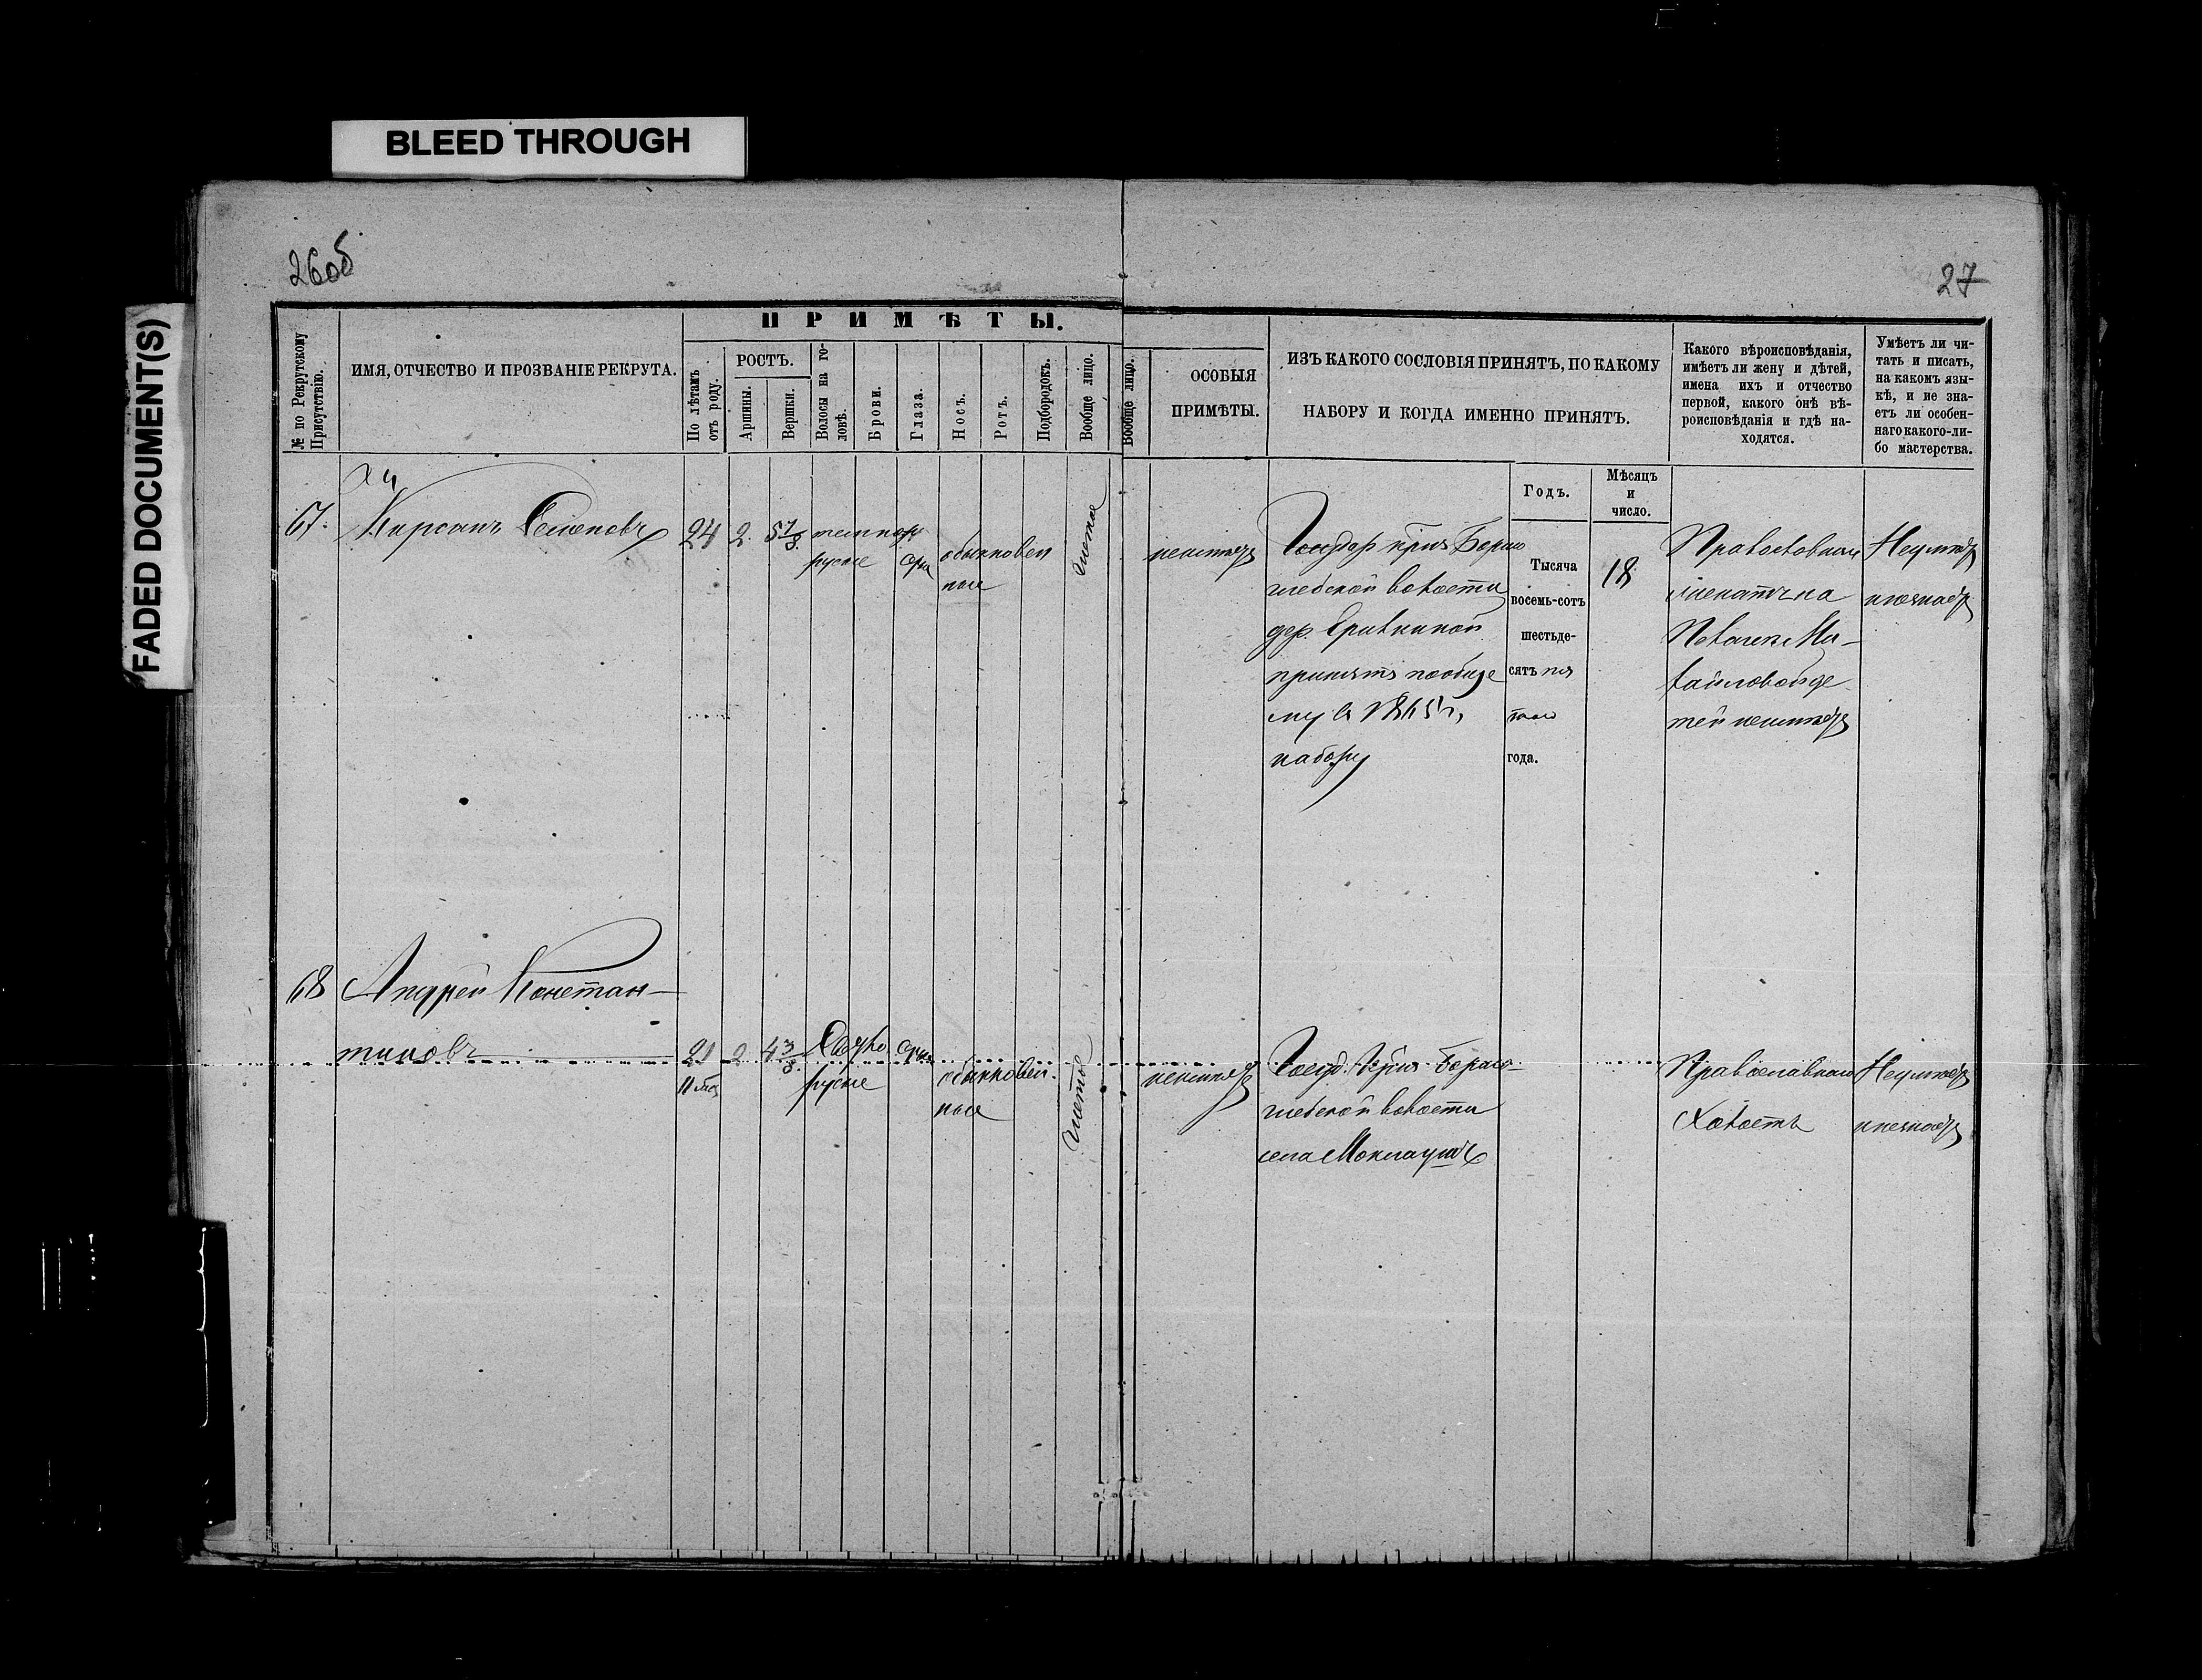 BLEED THROUGH
FADED DOCUMENT(S)
26об
27
№ по Рекрутскому Присутствію.
ИМЯ, ОТЧЕСТВО И ПРОЗВАНІЕ РЕКРУТА.
ПРИМѢТЫ.
По лѣтамъ отъ роду.
РОСТЪ.
Аршины.
Вершки.
Волосы на го-
ловѣ.
Брови.
Глаза.
Носъ.
Ротъ.
Подбородокъ.
Вообще лицо.
Вообще лицо.
ОСОБЫЯ
ПРИМѢТЫ.
ИЗЪ КАКОГО СОСЛОВІЯ ПРИНЯТЪ, ПО КАКОМУ
НАБОРУ И КОГДА ИМЕННО ПРИНЯТЪ.
Какого вѣроисповѣданія,
имѣетъ ли жену и дѣтей,
имена ихъ и отчество
первой, какого онѣ вѣ-
роисповѣданія и гдѣ на-
ходятся.
Умѣетъ ли чи-
тать и писать,
на какомъ язы-
кѣ, и не зна-
етъ ли особен-
наго какого-ли-
бо мастерства.
Годъ.
Мѣсяцъ
и
число.
67.
Кирсанъ Семеновъ
24
2
5 7/8
темно
русые
обыкновен
ные
чистое
неимѣетъ
волости
дер.
принятъ пообще
му въ 1865 г.
набору
Тысяча
восемь-сотъ
шестьде-
сятъ пя
таго
года.
18
Православнаго
женатъ на
Ми-
хайловой де
тей неимѣетъ
Неумѣетъ
незнаетъ
68
Андрей Констан-
тиновъ
21
2
4 3/8
русые
обыкновен
ные
чистое
неимѣетъ
Госуд.
волости
села Моклаушъ
Православнаго
Холостъ
Неумѣетъ
незнаетъ